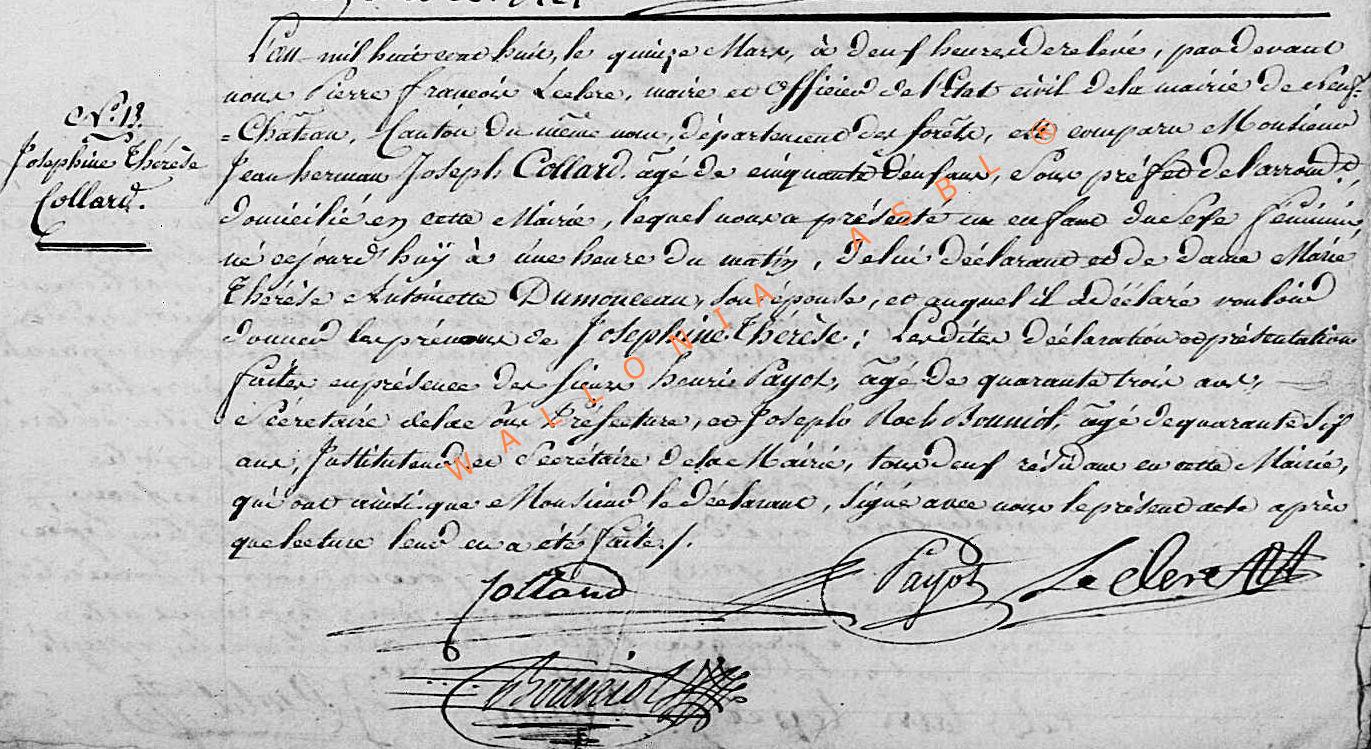 L'an mil huit cent huit, le quinze Mars, à deux heures de relevé, par devant
nous Pierre françois Leclerc, maire et Officier de l'Etat civil de la mairie de Neuf-
=Château, Canton du même nom, département des forêts, est comparu Monsieur
Jean herman Joseph Collard, âgé de cinquante deux ans, Sous préfet de l'arrond.t,
domicilié en cette Mairie, lequel nous a présenté un enfant du Sexe féminin,
né cejourd'huÿ à une heure du matin, de lui déclarant et de dame Marie
Thérèse Antoinette Dumonceau, son épouse, et auquel il a déclaré vouloir
donner les prénoms de Josephine Thérèse; Lesdites déclaration et présentation
faites en présence des Sieurs henri Payot, âgé de quarante trois ans,
Sécrétaire de la Sous Préfecture, et Joseph Roch Bournot, âgé de quarante Six
ans, Instituteur et Secrétaire de la Mairie, tous deux résidans en cette Mairie,
qui ont ainsi que Monsieur le déclarant, signé avec nous le présent acte après
que lecture leur en a été faite./.
N.° 13.
Josephine Thérèse
Collard.
Collard
Payot
Leclerc
WALLONIA ASBL ®